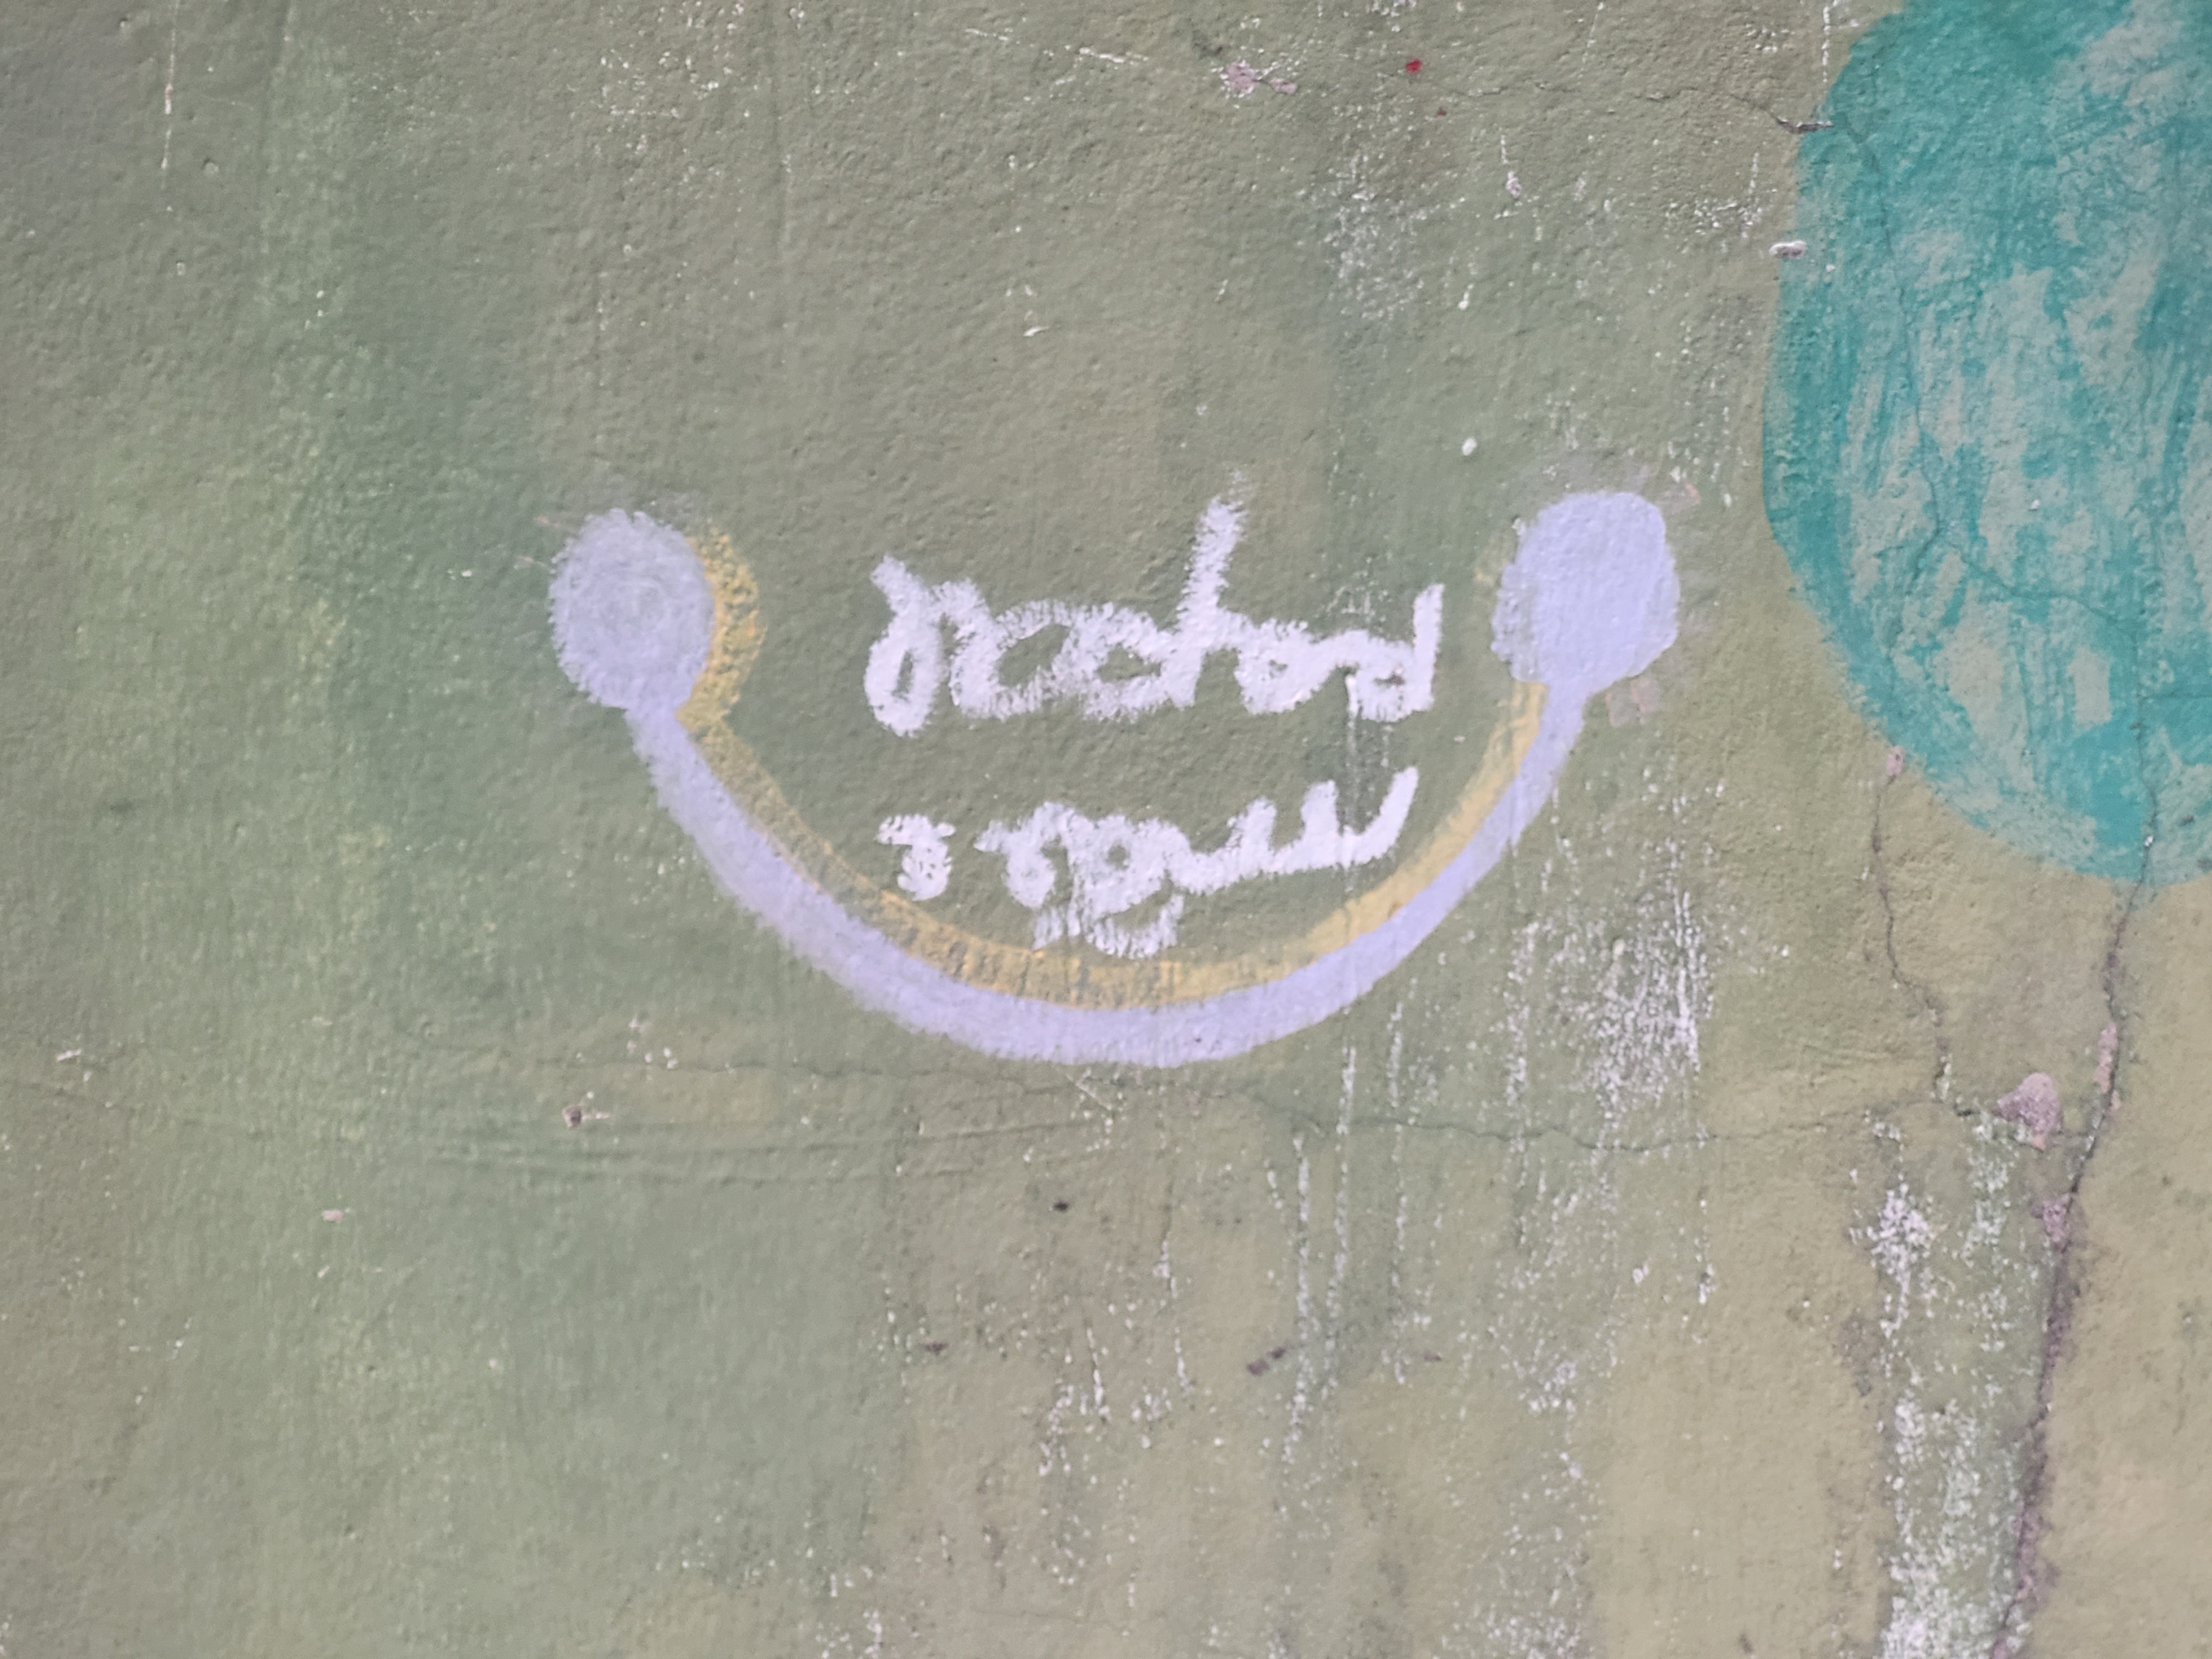 mãe e
papae